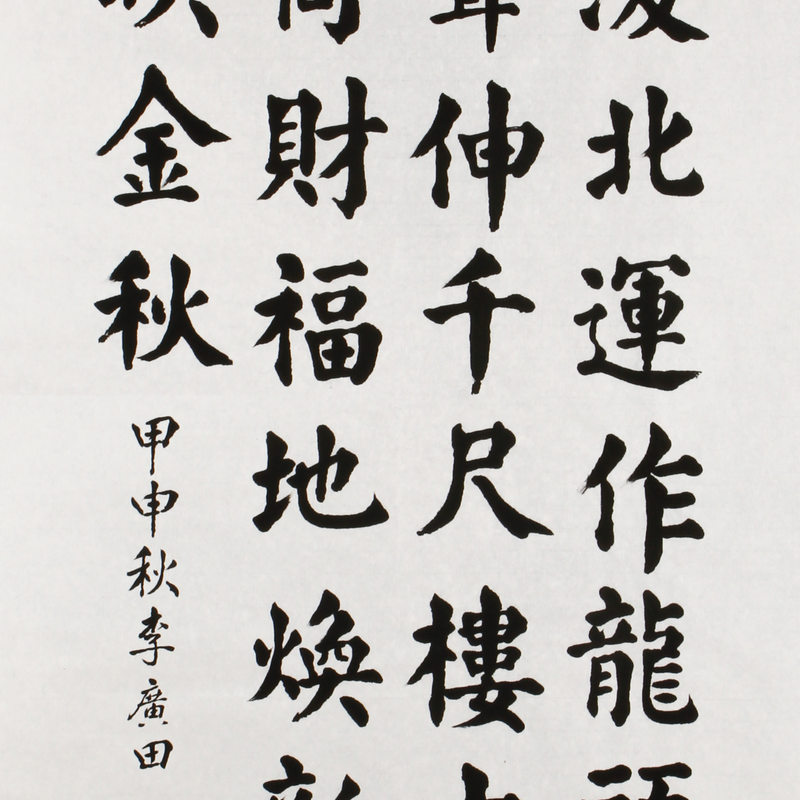 北運作龍頭
伸千尺樓
財福地煥新
金秋
甲申秋李廣田